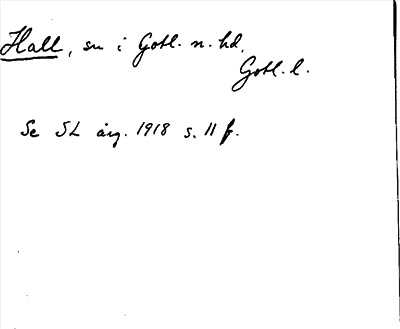 Hall, sn i Gotl. n. hd,
Gotl. l.
Se SL årg. 1918 s. 11 f.